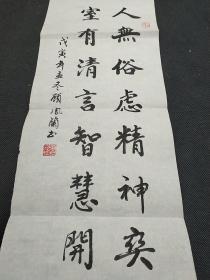 人無俗慮精神爽
室有清言智慧開
戊寅年孟冬顧鳳蘭書